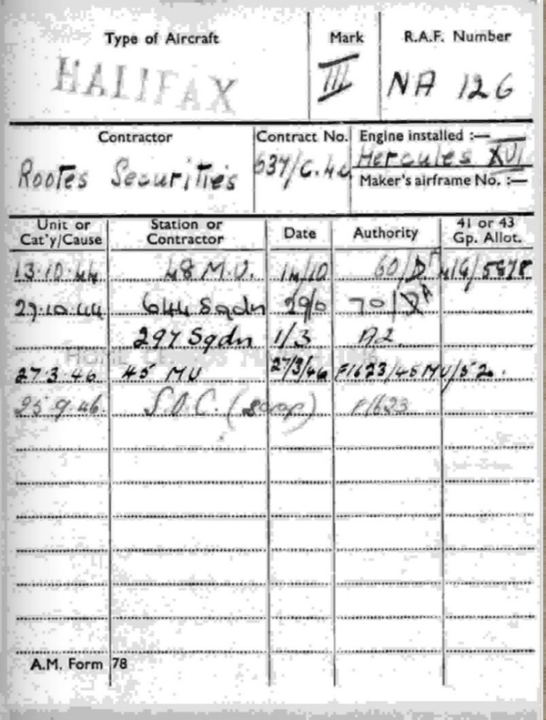 Type of Aircraft Mark R.A.F. Number
HALIFAX III NA 126
Contractor Contract No. Engine installed :—
Rootes Securities 637/C.4c Hercules XVI
Maker's airframe No. :—
Unit or Cat'y/Cause Station or Contractor Date Authority 41 or 43 Gp. Allot.
13.10.44 48 M.U. 14/10 60/ 41G/5878
27.10.44 644 Sqdn 29/0 70/
297 Sqdn 1/3 A2
27.3.46 45 MU 27/3/46 F1623/45MU/52.
25.9.46. S.O.C. (scrap) F1623
A.M. Form 78